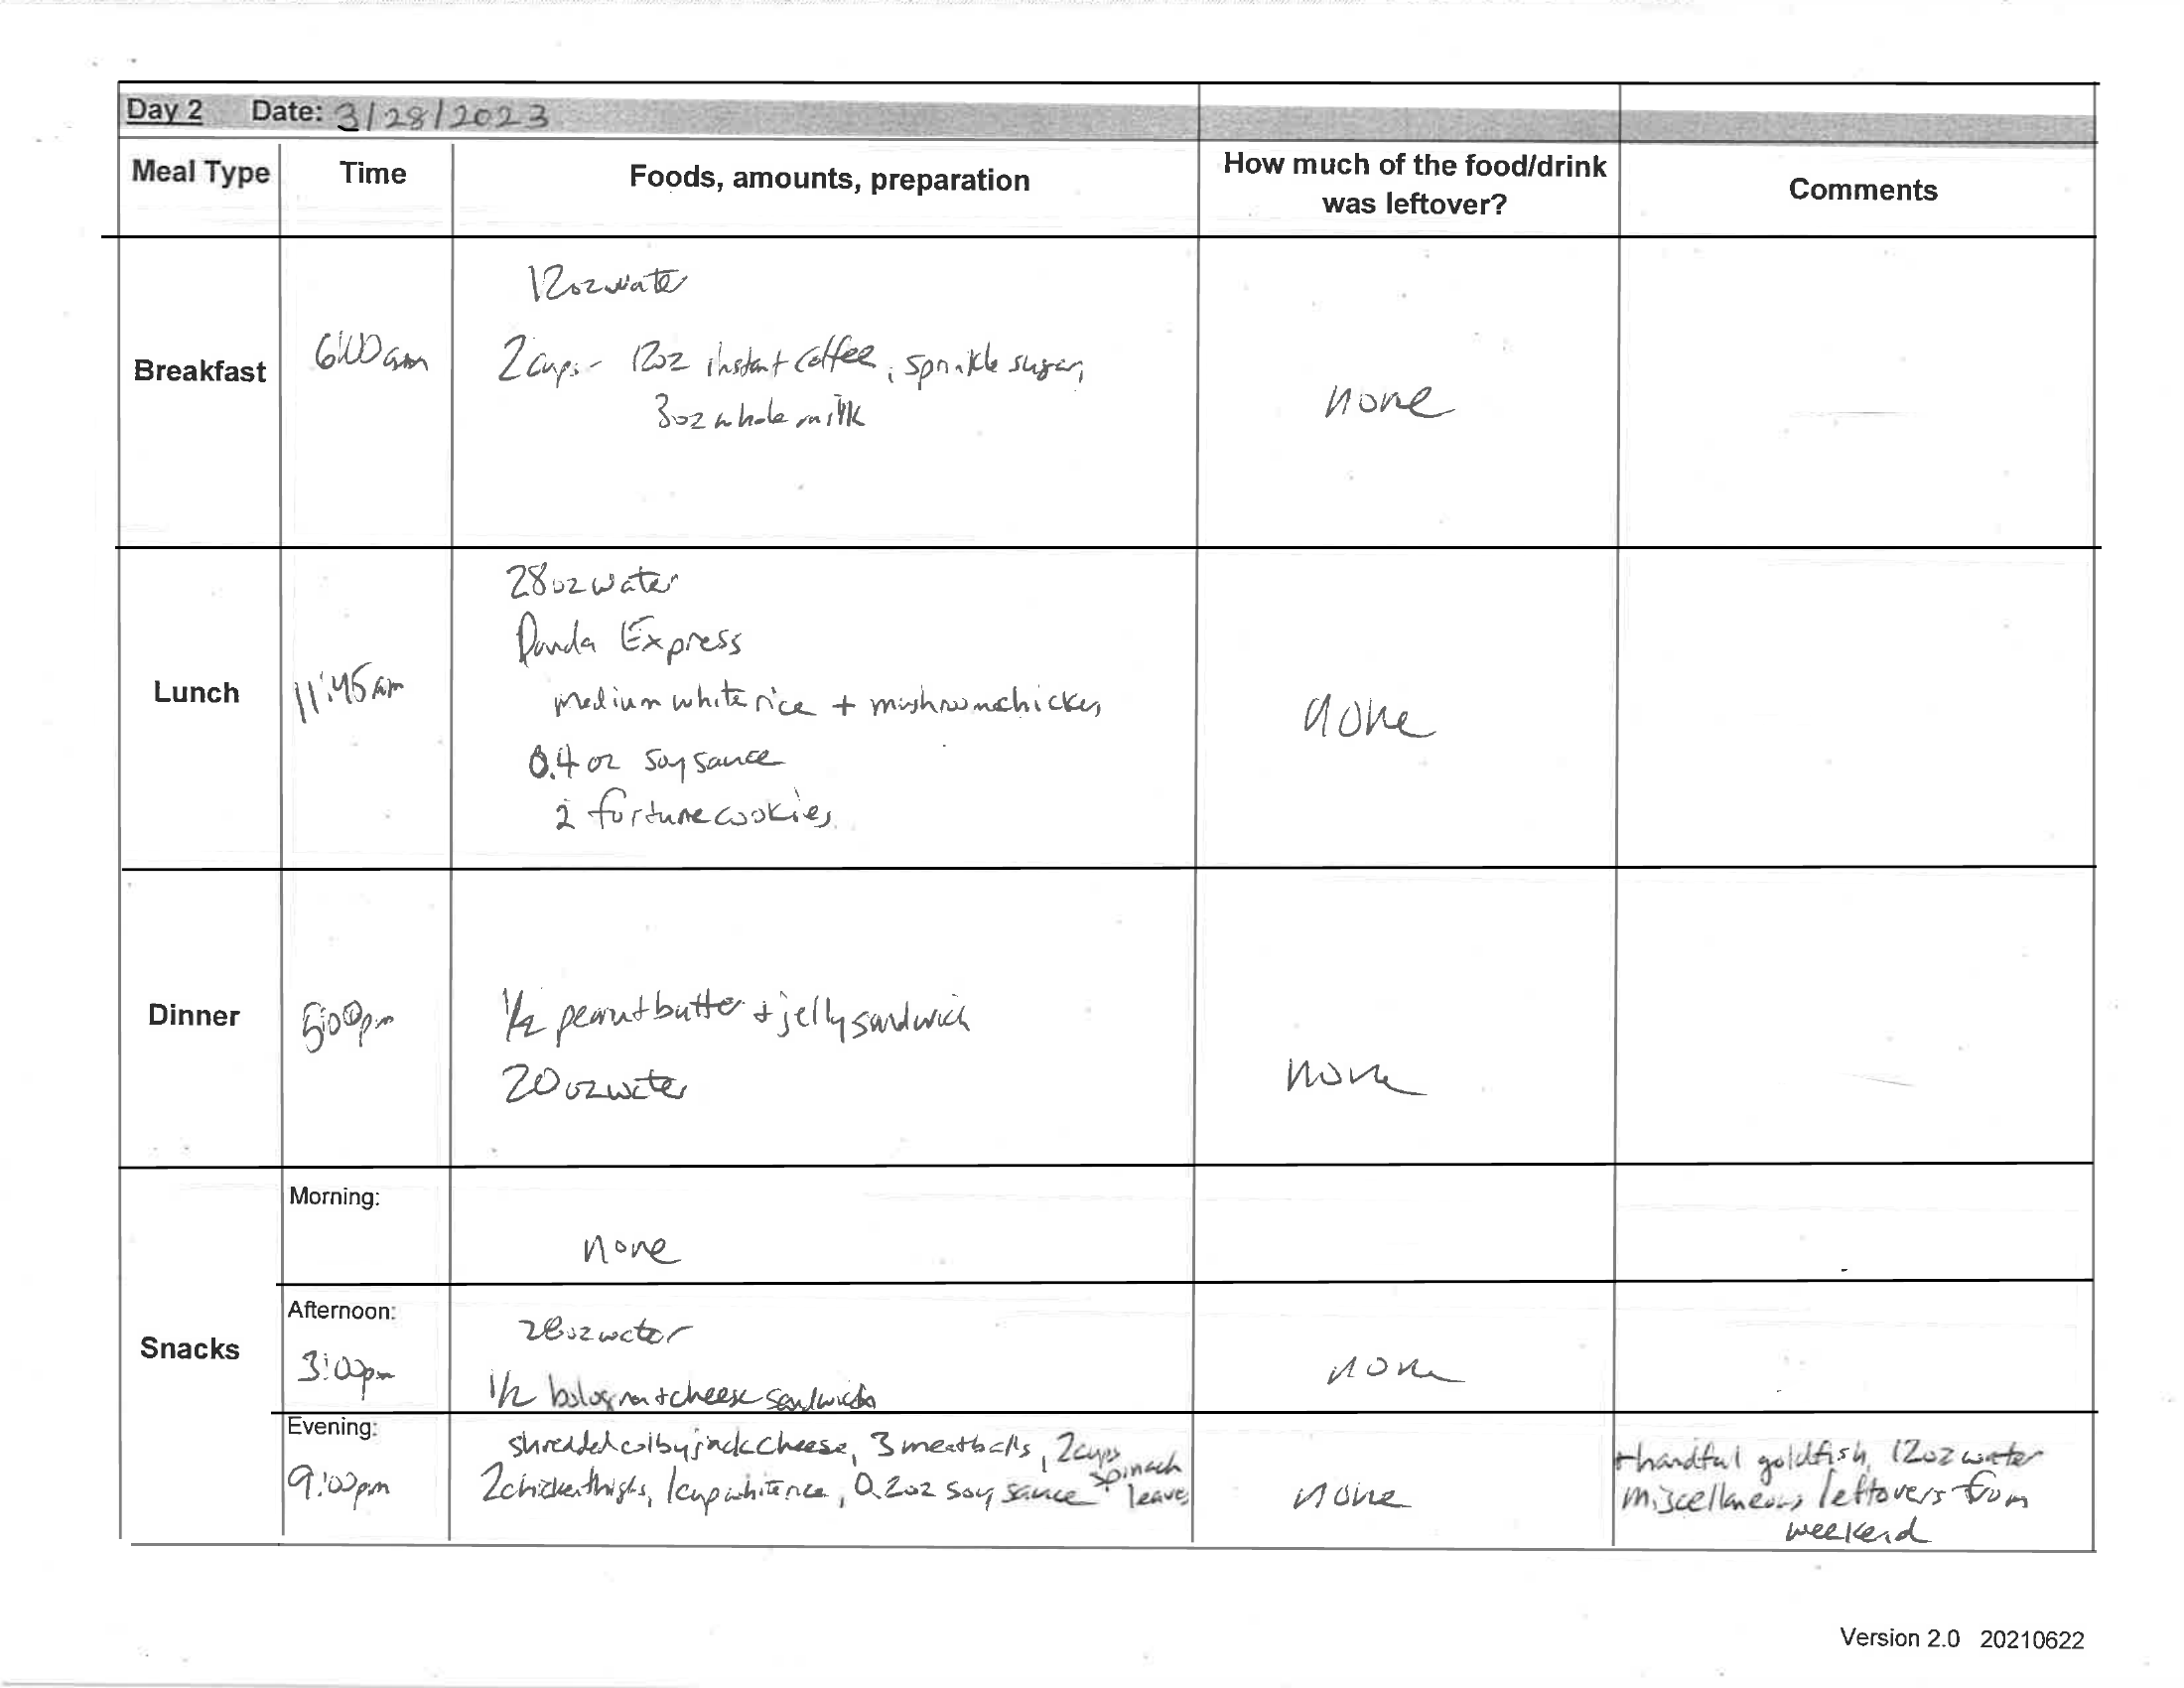 Day 2 Date: 3/28/2023
Meal Type Time Foods, amounts, preparation How much of the food/drink was leftover? Comments
Breakfast 6:00am
12oz water
2 cups - 12oz instant coffee, sprinkle sugar,
3oz whole milk
none
Lunch 11:45am
28oz water
Panda Express
medium white rice + mushroom chicken
0.4 oz soy sauce
2 fortune cookies
none
Dinner 5:00pm
1/2 peanut butter + jelly sandwich
20oz water
none
Snacks
Morning:
none
Afternoon:
3:00pm
28oz water
1/2 bologna + cheese sandwich
none
Evening:
9:00pm
shredded colby jack cheese, 3 meatballs, 2cups spinach leaves
2 chicken thighs, 1 cup white rice, 0.2oz soy sauce +
none
+ handful goldfish, 12oz water
miscellaneous leftovers from
weekend
Version 2.0 20210622